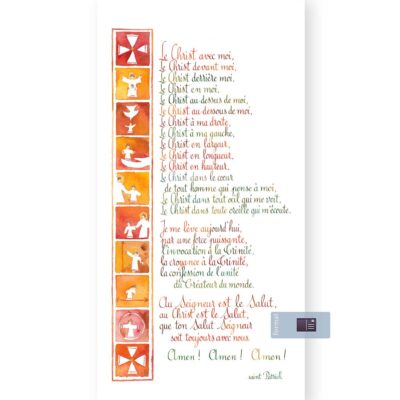 Le Christ avec moi,
le Christ devant moi,
le Christ derrière moi,
le Christ en moi,
le Christ au-dessus de moi,
le Christ au-dessous de moi,
le Christ à ma droite,
le Christ à ma gauche,
le Christ en largeur,
le Christ en longueur,
le Christ en hauteur,
le Christ dans le cœur
de tout homme qui pense à moi,
le Christ dans tout œil qui me voit,
le Christ dans toute oreille qui m'écoute.
Je me lève aujourd'hui,
par une force puissante,
l'invocation à la Trinité,
la croyance à la Trinité,
la confession de l'unité
du Créateur du monde.
Au Seigneur est le Salut,
au Christ est le Salut,
que ton Salut Seigneur
soit toujours avec nous.
Amen ! Amen ! Amen !
saint Patrick
format